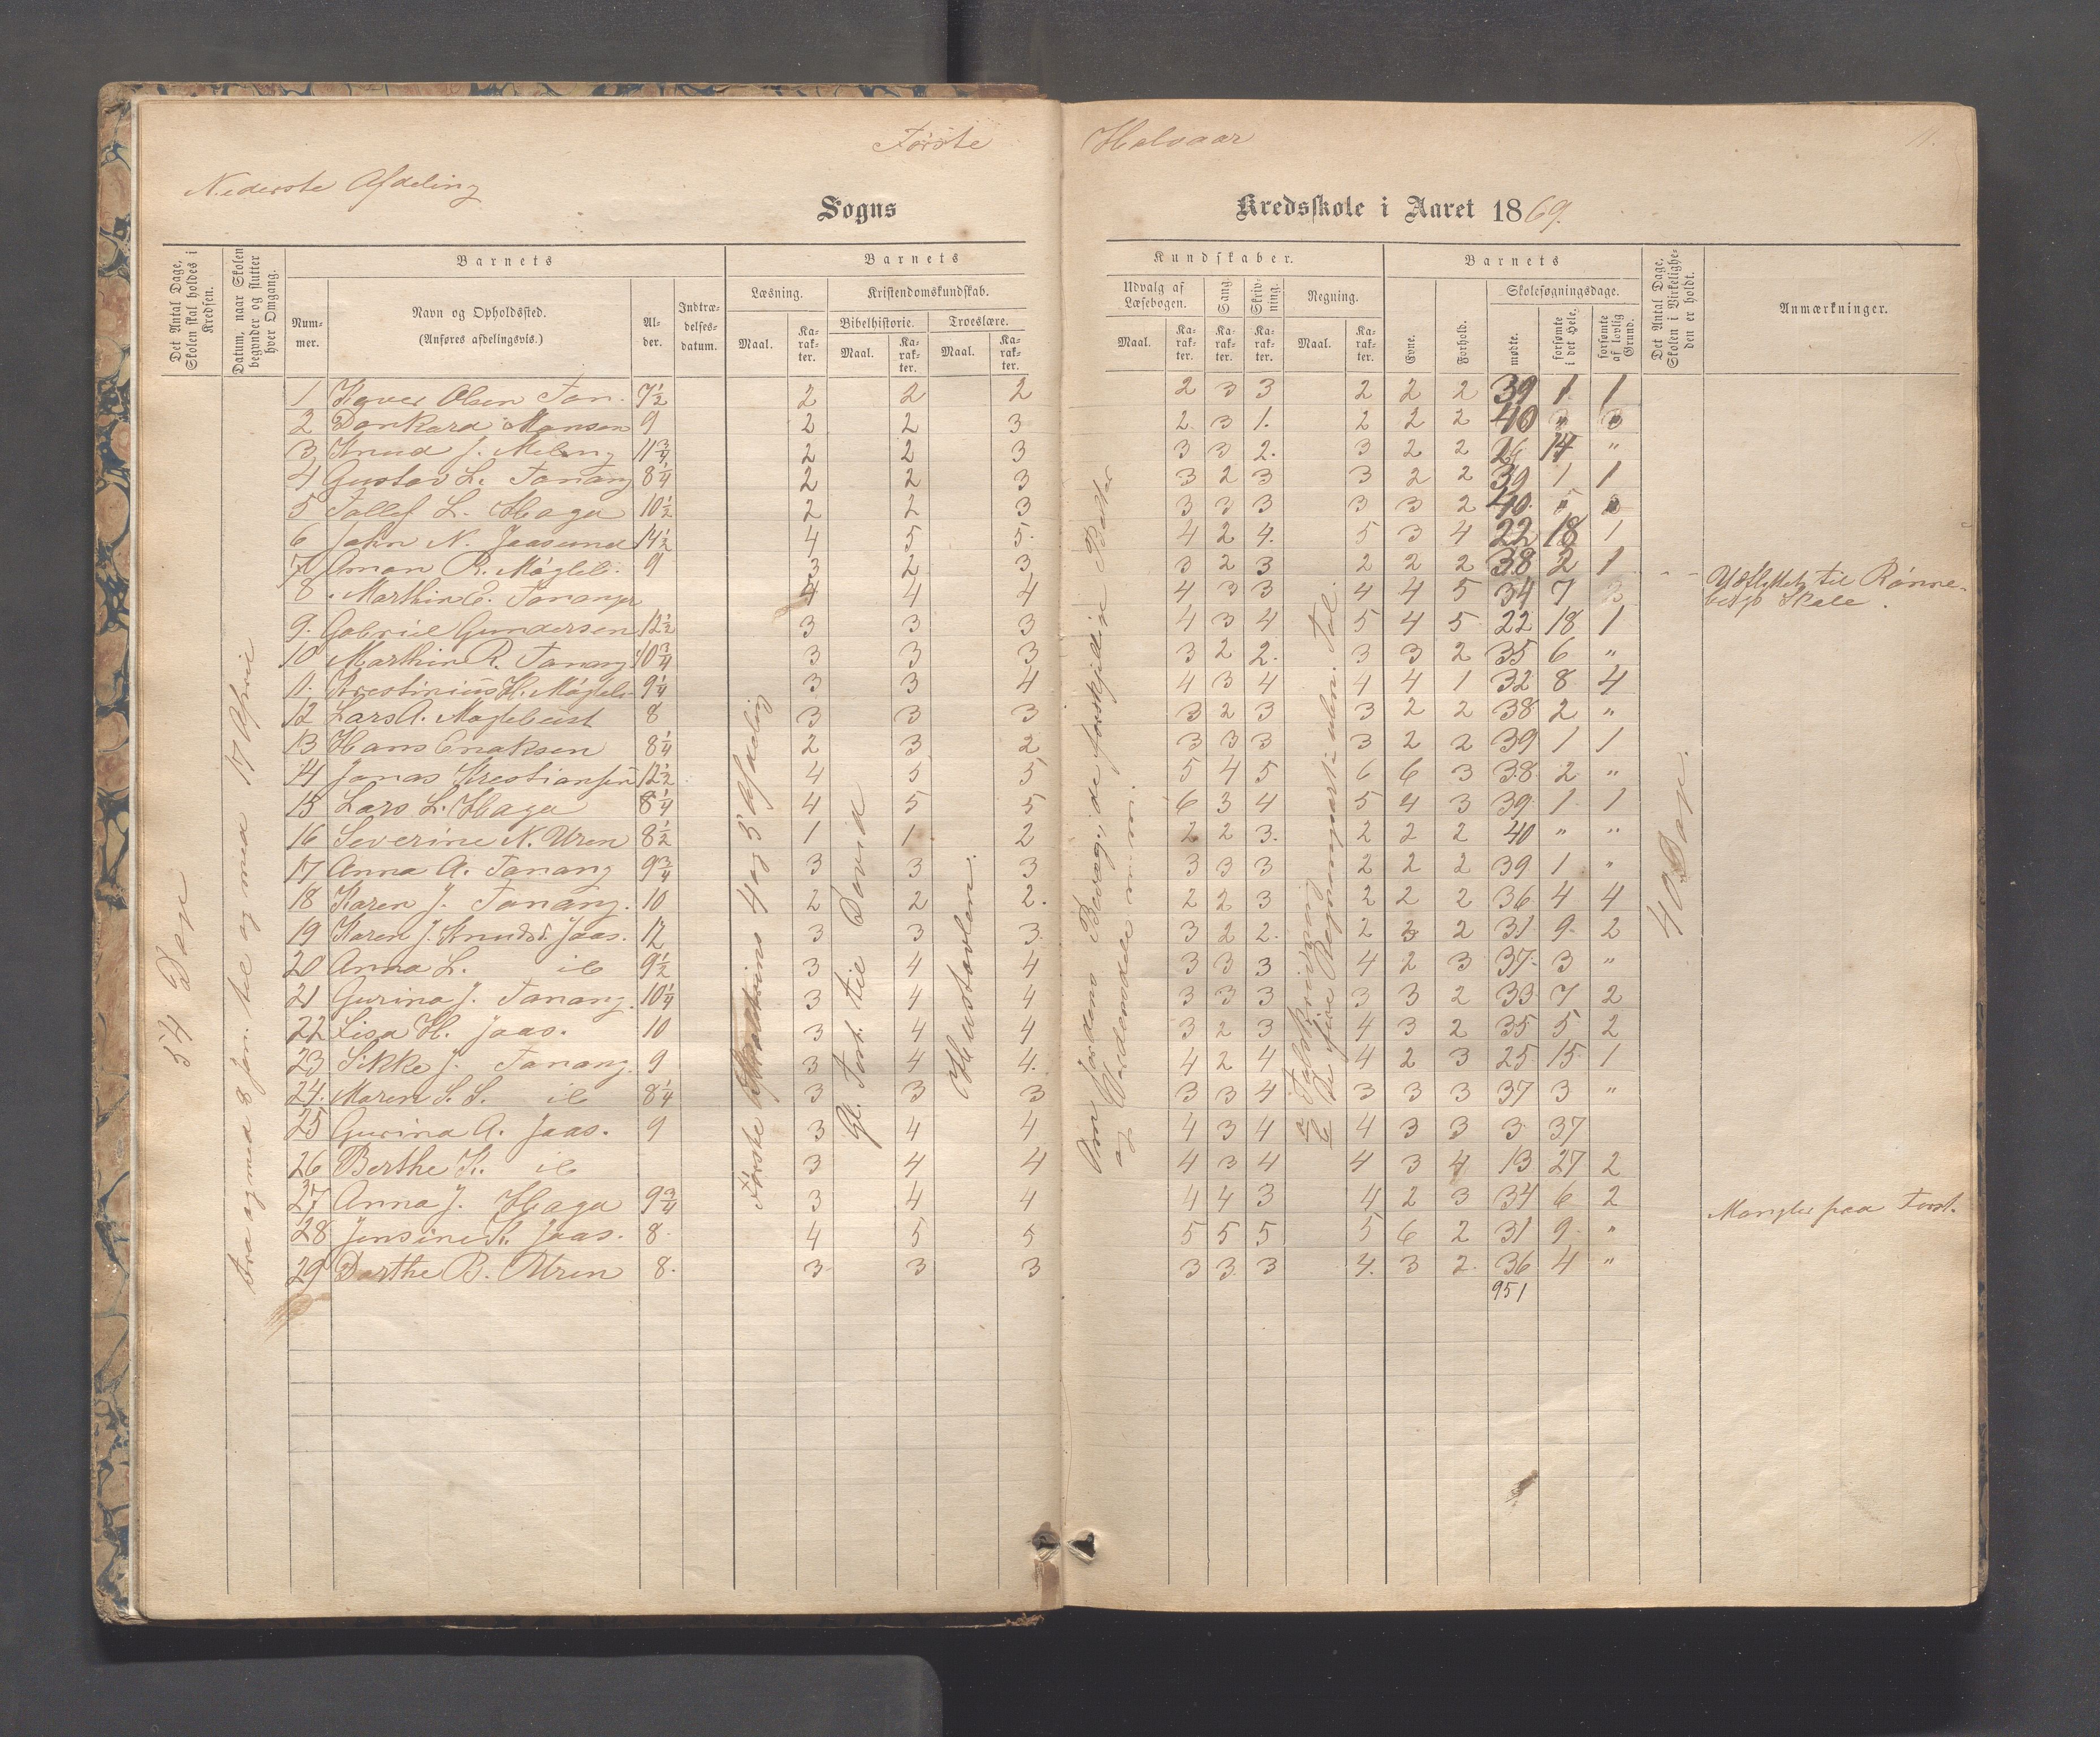 Første Halvaar
11.
Nederste Afdeling
Sogns Kredsskole i Aaret 1869.
Det Antal Dage, Skolen skal holdes i Kredsen.
Datum, naar Skolen begynder og slutter hver Omgang.
Barnets
Nummer.
Navn og Opholdssted.
(Anføres afdelingsvis.)
Alder.
Indtrædelsesdatum.
Barnets Kundskaber.
Læsning.
Maal.
Karakter.
Kristendomskundskab.
Bibelhistorie.
Maal.
Karakter.
Troeslære.
Maal.
Karakter.
Udvalg af Læsebogen.
Maal.
Karakter.
Sang.
Karakter.
Skrivning.
Karakter.
Regning.
Maal.
Karakter.
Barnets
Evne.
Forhold.
Skolesøgningsdage.
mødte.
forsømte i det Hele.
forsømte af lovlig Grund.
Det Antal Dage, Skolen i Virkeligheden er holdt.
Anmærkninger.
54 Dage
fra og med 8 Jan. til og med 17 April
Første 4 og 5 Afdeling
Gl. Test. til David
Hustavlen.
Om Jordens Bevæg., de forskjellige
40 Dage.
1 Olsen Tan. 7½ 2 2 2 2 3 3 2 2 2 39 1 1
2 Dankard Monsen 9 2 2 3 2 3 1. 2 2 2 40 "
3 Knud J. Meling 11¾ 2 2 3 3 3 2. 3 2 2 26 14 "
4 Gustav L. Tanang 8¼ 2 2 3 3 2 3 3 2 2 39 1 1
5 Tollef L. Haga 10½ 2 2 3 3 3 3 3 3 2 40 "
6. John N. Jaasund 14½ 4 5 5. 4 2 4. 5 3 4 22 18 1
7 Aman R. Møgleb. 9 3 2 3 3 2 3 2 2 2 38 2 1
8. Marthin E. Tananger 4 4 4 4 3 3 4 4 5 34 7 Udflyttet til Rønnebergs Skole.
9. Gabriel Gundersen 12½ 3 3 3 4 3 4 5 4 5 22 18 1
10 Marthin R. Tanang 10¾ 3 3 3 3 2 2. 3 3 2 35 6 "
11. Krestinius H. Møgleb. 9¼ 3 3 4 4 3 4 4 4 1 32 8 4
12 Lars A. Møglebust 8 3 3 3 3 2 3 3 2 2 38 2 "
13 Hans Enaksen 8¼ 2 3 2 3 3 3 3 2 2 39 1 1
14 Jonas Krestiansen 12½ 4 5 5 5 4 5 6 6 3 38 2 "
15 Lars L. Haga 8¼ 4 5 5 6 3 4 5 4 3 39 1 1
16 Severine N. Uren 8½ 1 1 2 2 2 3. 2 2 2 40 " "
17 Anna A. Tanang 9¾ 3 3 3 3 3 3 2 2 2 39 1 "
18 Karen J. Tanang. 10 2 2 2. 2 2 3 2 2 2 36 4 4
19 Karen J. Knudsd. Jaas. 12 3 3 3. 3 2 2. 2 3 2 31 9 2
20 Anna L. ib 9½ 3 4 4 3 3 3 4 2 3 37 3 "
21 Gurina J. Tanang. 10¼ 3 4 4 3 3 3 3 3 2 33 7 2
22 Lisa H. Jaas. 10 3 4 4 3 2 3 4 3 2 35 5 2
23 Sikke J. Tanang. 9 3 4 4. 4 2 4 4 2 3 25 15 1
24. Maren S. S. ib 8¼ 3 3 3 3 3 4. 3 3 3 37 3 "
25 Gurina A. Jaas. 9 3 4 4 4 3 4 4 3 3 3 37
26 Berthe K. ib 3 4 4 4 3 4 4 3 4 13 27 2
27 Anna J. Haga 9¾ 3 4 4 4 4 3 4 2 3 34 6 2 Mangler paa Forst.
28 Jensine K. Jaas. 8. 4 5 5 5 5 5 5 6 2 31 9 "
29 Dorthe B. Uren 8. 3 3 3 3 3 3 4. 3 2. 36 4 "
951